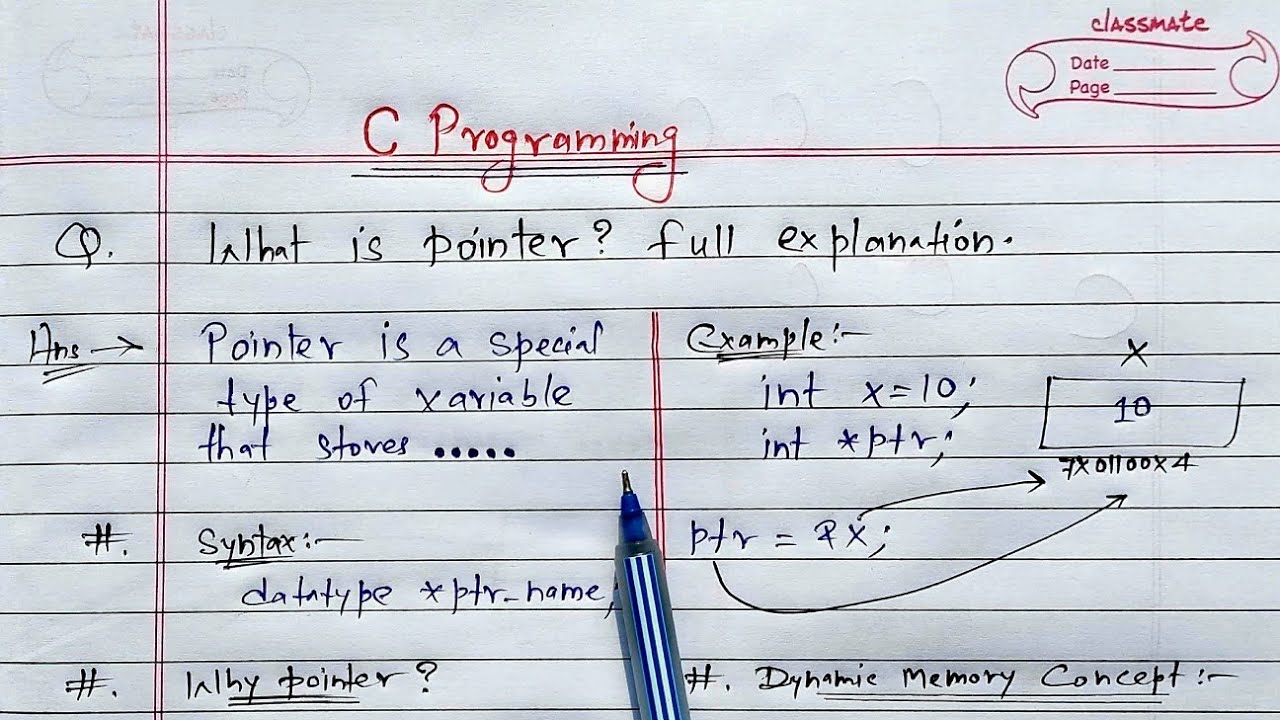 classmate
Date
Page
C Programming
Q. What is pointer? full explanation.
Ans → Pointer is a special
type of variable
that stores .....
Example:-
int x=10;
int *ptr;
ptr = &x;
X
10
7X01100X4
#. Syntax:-
datatype *ptr_name;
#. Why pointer?
#. Dynamic Memory Concept:-